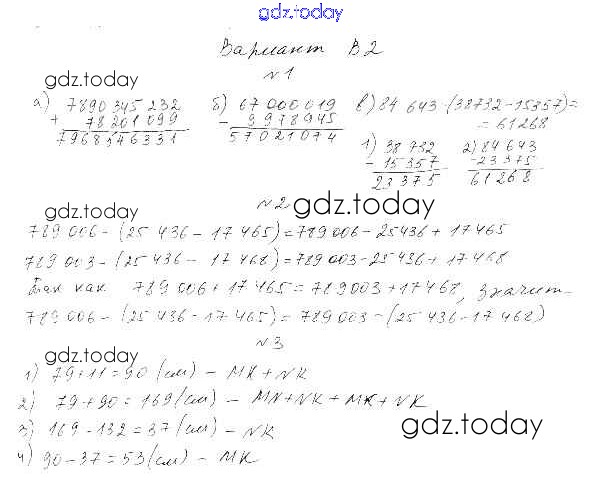 gdz.today
Вариант В2
gdz.today
№1
а) 7890 345 232
+ 78 201 099
7968546331
б) 67 000 019
- 9 978 945
57 021 074
в) 84 643 - (38732 - 15357) =
= 61268
1) 38 732
- 15 357
23 375
2) 84 643
- 23 375
61 268
gdz.today
№2
gdz.today
789 006 - (25 436 - 17 465) = 789 006 - 25436 + 17465
789 003 - (25 436 - 17 468) = 789 003 - 25 436 + 17 468
Так как 789 006 + 17 465 = 789003 + 17468, значит
789 006 - (25 436 - 17 465) = 789 003 - (25 436 - 17 468)
№3
gdz.today
1) 79 + 11 = 90 (см) - МК + NK
2) 79 + 90 = 169 (см) - MN + NK + MK + NK
3) 169 - 132 = 37 (см) - NK
4) 90 - 37 = 53 (см) - МК
gdz.today